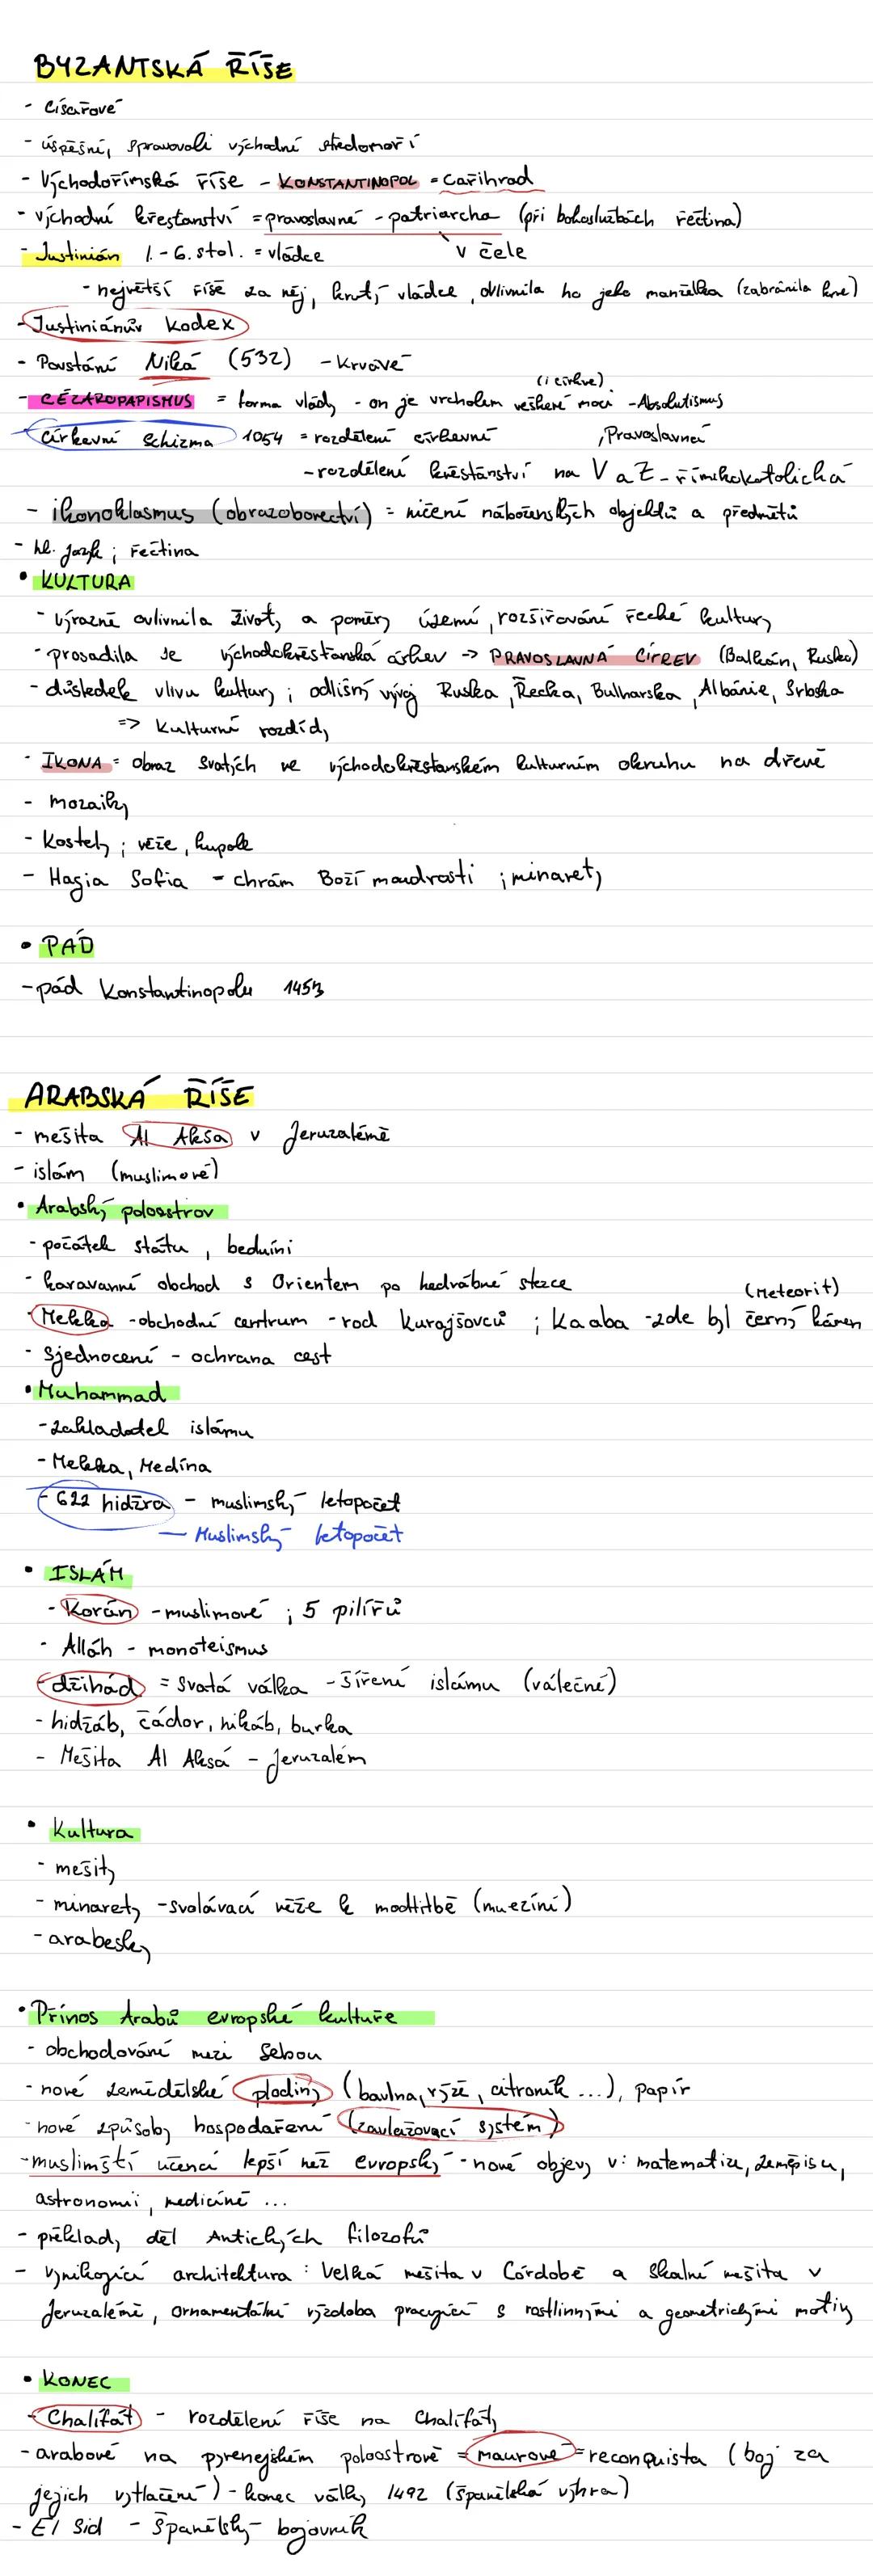 BYZANTSKÁ ŘÍŠE
- císařové
- úspěšní, spravovali východní středomoří
- Východořímská říše - KONSTANTINOPOL = Cařihrad
- východní křesťanství = pravoslavné - patriarcha (při bohoslužbách řečtina)
v čele
- Justinián 1. - 6. stol. = vládce
- největší říše za něj, krutý vládce, ovlivnila ho jeho manželka (zabránila krve)
- Justiniánův kodex
- Povstání Niká (532) - krvavé
(i církve)
- CÉZAROPAPISMUS = forma vlády - on je vrcholem veškeré moci - Absolutismus
- Církevní schizma 1054 = rozdělení církevní , Pravoslavná
- rozdělení křesťanství na V a Z - římskokatolická
- ikonoklasmus (obrazoborectví) = ničení náboženských objektů a předmětů
- hl. jazyk ; řečtina
• KULTURA
- výrazně ovlivnila životy a poměry území, rozšiřování řecké kultury
- prosadila se východokřesťanská církev -> PRAVOSLAVNÁ CÍRKEV (Balkán, Rusko)
- důsledek vlivu kultury ; odlišný vývoj Ruska, Řecka, Bulharska, Albánie, Srbska
=> kulturní rozdíly
- IKONA = obraz svatých ve východokřesťanském kulturním okruhu na dřevě
- mozaiky
- kostely ; věže, kupole
- Hagia Sofia - chrám Boží moudrosti ; minarety
• PÁD
- pád Konstantinopolu 1453
ARABSKÁ ŘÍŠE
- mešita Al Aksa v Jeruzalémě
- islám (muslimové)
• Arabský poloostrov
- počátek státu, beduíni
- karavanné obchod s Orientem po hedvábné stezce
(Meteorit)
- Mekka - obchodní centrum - rod Kurajšovců ; Kaaba - zde byl černý kámen
- sjednocení - ochrana cest
• Muhammad
- zakladatel islámu
- Mekka, Medína
- 622 hidžra - muslimský letopočet
- Muslimský letopočet
• ISLÁM
- Korán - muslimové ; 5 pilířů
- Alláh - monoteismus
- džihád = svatá válka - šíření islámu (válečné)
- hidžáb, čádor, nikáb, burka
- Mešita Al Aksá - Jeruzalém
• Kultura
- mešity
- minarety - svolávací věže k modlitbě (muezíni)
- arabesky
• Přínos Arabů evropské kultuře
- obchodování mezi sebou
- nové zemědělské plodiny (bavlna, rýže, citroník ...), papír
- nové způsoby hospodaření (zavlažovací systém)
- muslimští učenci lepší než evropský - nové objevy v: matematice, zeměpisu,
astronomii, medicíně ...
- překlady děl Antických filozofů
- vynikající architektura : Velká mešita v Córdobě a Skalní mešita v
Jeruzalémě, ornamentální výzdoba pracující s rostlinnými a geometrickými motivy
• KONEC
- Chalífát - rozdělení říše na Chalífáty
- arabové na pyrenejském poloostrově = maurové = reconquista (boj za
jejich vytlačení) - konec války 1492 (španělská výhra)
- El Sid - Španělský bojovník